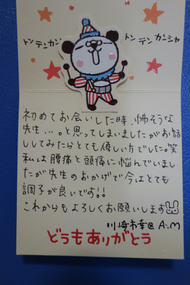 トンテンカン
トンテンカンシャ
初めてお会いした時、怖そうな
先生...。と思ってしまいましたがお話
ししてみたらとても優しい方でした。笑
私は腰痛と頭痛に悩んでいまし
たが先生のおかげで今はとても
調子が良いです!!
これからもよろしくお願いします
川崎市幸区 A.M
どうもありがとう